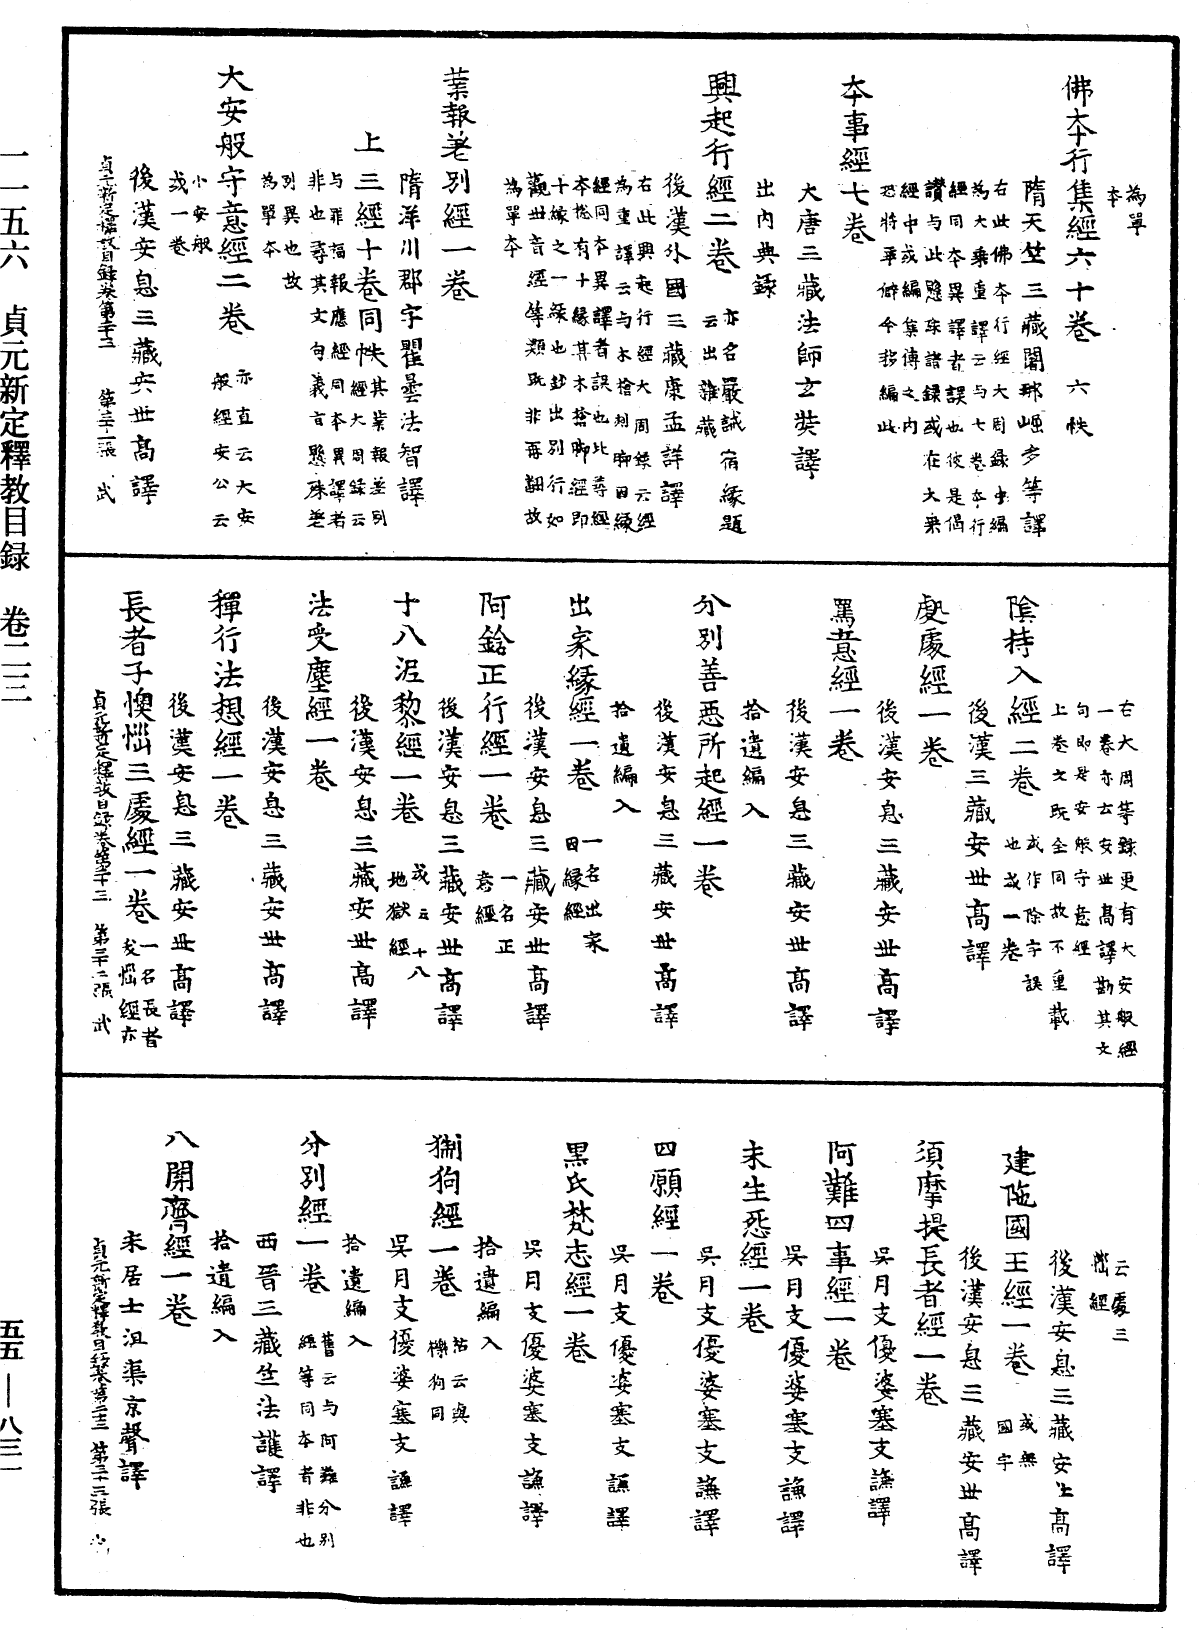 一一五六　貞元新定釋教目録　卷二三
五五—八三一
為單
本
佛本行集經六十卷　六帙
隋天竺三藏闍那崛多等譯
右此佛本行經大周録中編
為大乘重譯云與七卷本行
經同本異譯者誤也彼是偈
讚与此懸殊諸録或在大乘
經中或編集傳之内
恐將乖僻今移編此
本事經七卷
大唐三藏法師玄奘譯
出内典録
興起行經二卷　亦名嚴誡宿緣題
云出雜藏
後漢外國三藏康孟詳譯
右此興起行經大周録云經
為重譯云与木槍刺脚因緣
經同本異譯者誤也此尋經
本揔有十緣其木槍脚經即
十緣之一緣也鈔出別行如
觀世音經等類既非再翻故
為單本
業報差別經一卷
隋洋川郡守瞿曇法智譯
上三經十卷同帙　其業報差別
經大周録云
与罪福報應經同本異譯者
非也尋其文句義言懸殊差
列異也故
為單本
大安般守意經二卷　亦直云大安
般經安公云
小安般
或一卷
後漢安息三藏安世高譯
貞元新定釋教目録卷第二十三　第三十一張　武
右大周等録更有大安般經
一卷亦云安世高譯勘其文
句即是安般守意經
上卷文既全同故不重載
陰持入經二卷　或作除字誤
也或一卷
後漢三藏安世高譯
處處經一卷
後漢安息三藏安世高譯
罵意經一卷
後漢安息三藏安世高譯
拾遺編入
分別善惡所起經一卷
後漢安息三藏安世高譯
拾遺編入
出家緣經一卷　一名出家
因緣經
後漢安息三藏安世高譯
阿鋡正行經一卷　一名正
意經
後漢安息三藏安世高譯
十八泥犁經一卷　或云十八
地獄經
後漢安息三藏安世高譯
法受塵經一卷
後漢安息三藏安世高譯
禪行法想經一卷
後漢安息三藏安世高譯
長者子懊惱三處經一卷　一名長者
夭惱經亦
貞元新定釋教目録卷第二十三　第三十二張　武
云處三
惱經
後漢安息三藏安世高譯
犍陁國王經一卷　或無
國字
後漢安息三藏安世高譯
須摩提長者經一卷
吳月支優婆塞支謙譯
阿難四事經一卷
吳月支優婆塞支謙譯
未生怨經一卷
吳月支優婆塞支謙譯
四願經一卷
吳月支優婆塞支謙譯
黑氏梵志經一卷
吳月支優婆塞支謙譯
拾遺編入
猘狗經一卷　祐云與
㹞狗同
吳月支優婆塞支謙譯
拾遺編入
分別經一卷　舊云与阿難分別
經等同本者非也
西晉三藏竺法護譯
拾遺編入
八關齋經一卷
宋居士沮渠京聲譯
貞元新定釋教目録卷第二十三　第三十三張